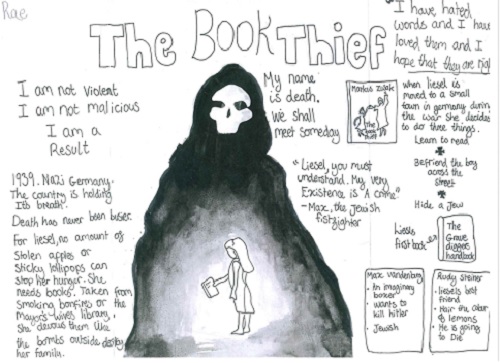 Rae
The Book Thief
"I have hated
words and I have
loved them and I
hope that they are right
I am not violent
I am not malicious
I am a
Result
My name
is death.
We shall
meet someday
Markus Zusak
The
Book
Thief
when liesel is
moved to a small
town in germany during
the war she decides
to do three things.
Learn to read
Befriend the boy
across the
street
Hide a Jew
"Liesel, you must
understand. My very
Existence is 'A crime'"
- Max, the Jewish
fistfighter
Liesels
first book
The
Grave
diggers
handbook
1939. Nazi Germany.
The country is holding
Its breath.
Death has never been busier.
For liesel, no amount of
Stolen apples or
Sticky lollipops can
stop her hunger. She
needs books. Taken from
smoking bonfires or the
Mayor's wifes library,
She devours them like
the bombs outside destroy
her family.
Max Vandenburg
- An imaginary
boxer
- wants to
kill hitler
- Jewish
Rudy Steiner
- liesels best
friend
- Hair the colour
of lemons
- He is going
to Die